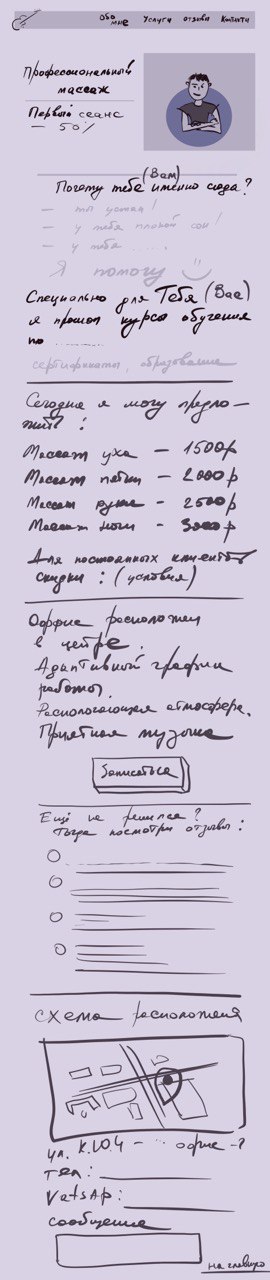 Обо мне Услуги отзывы Контакты
Профессиональный
массаж
Первый сеанс
— 50%
(Вам)
Почему тебе именно сюда?
— ты устал!
— у тебя плохой сон!
— у тебя ......
Я помогу
Специально для Тебя (Вас)
я прошел курсы обучения
по ..........
сертификаты, образование
Сегодня я могу предло-
жить:
Массаж уха — 1500р
Массаж пятки — 2000р
Массаж руки — 2500р
Массаж ноги — 3000р
Для постоянных клиентов
скидки: (условия)
Оффис расположен
в центре.
Адаптивный график
работы.
Располагающая атмосфера.
Приятная музыка
Записаться
Ещё не решился?
Тогда посмотри отзывы:
схема расположения
ул. К.Ю.Ч — ... офис -?
тел:
VatsAp:
сообщение
на главную